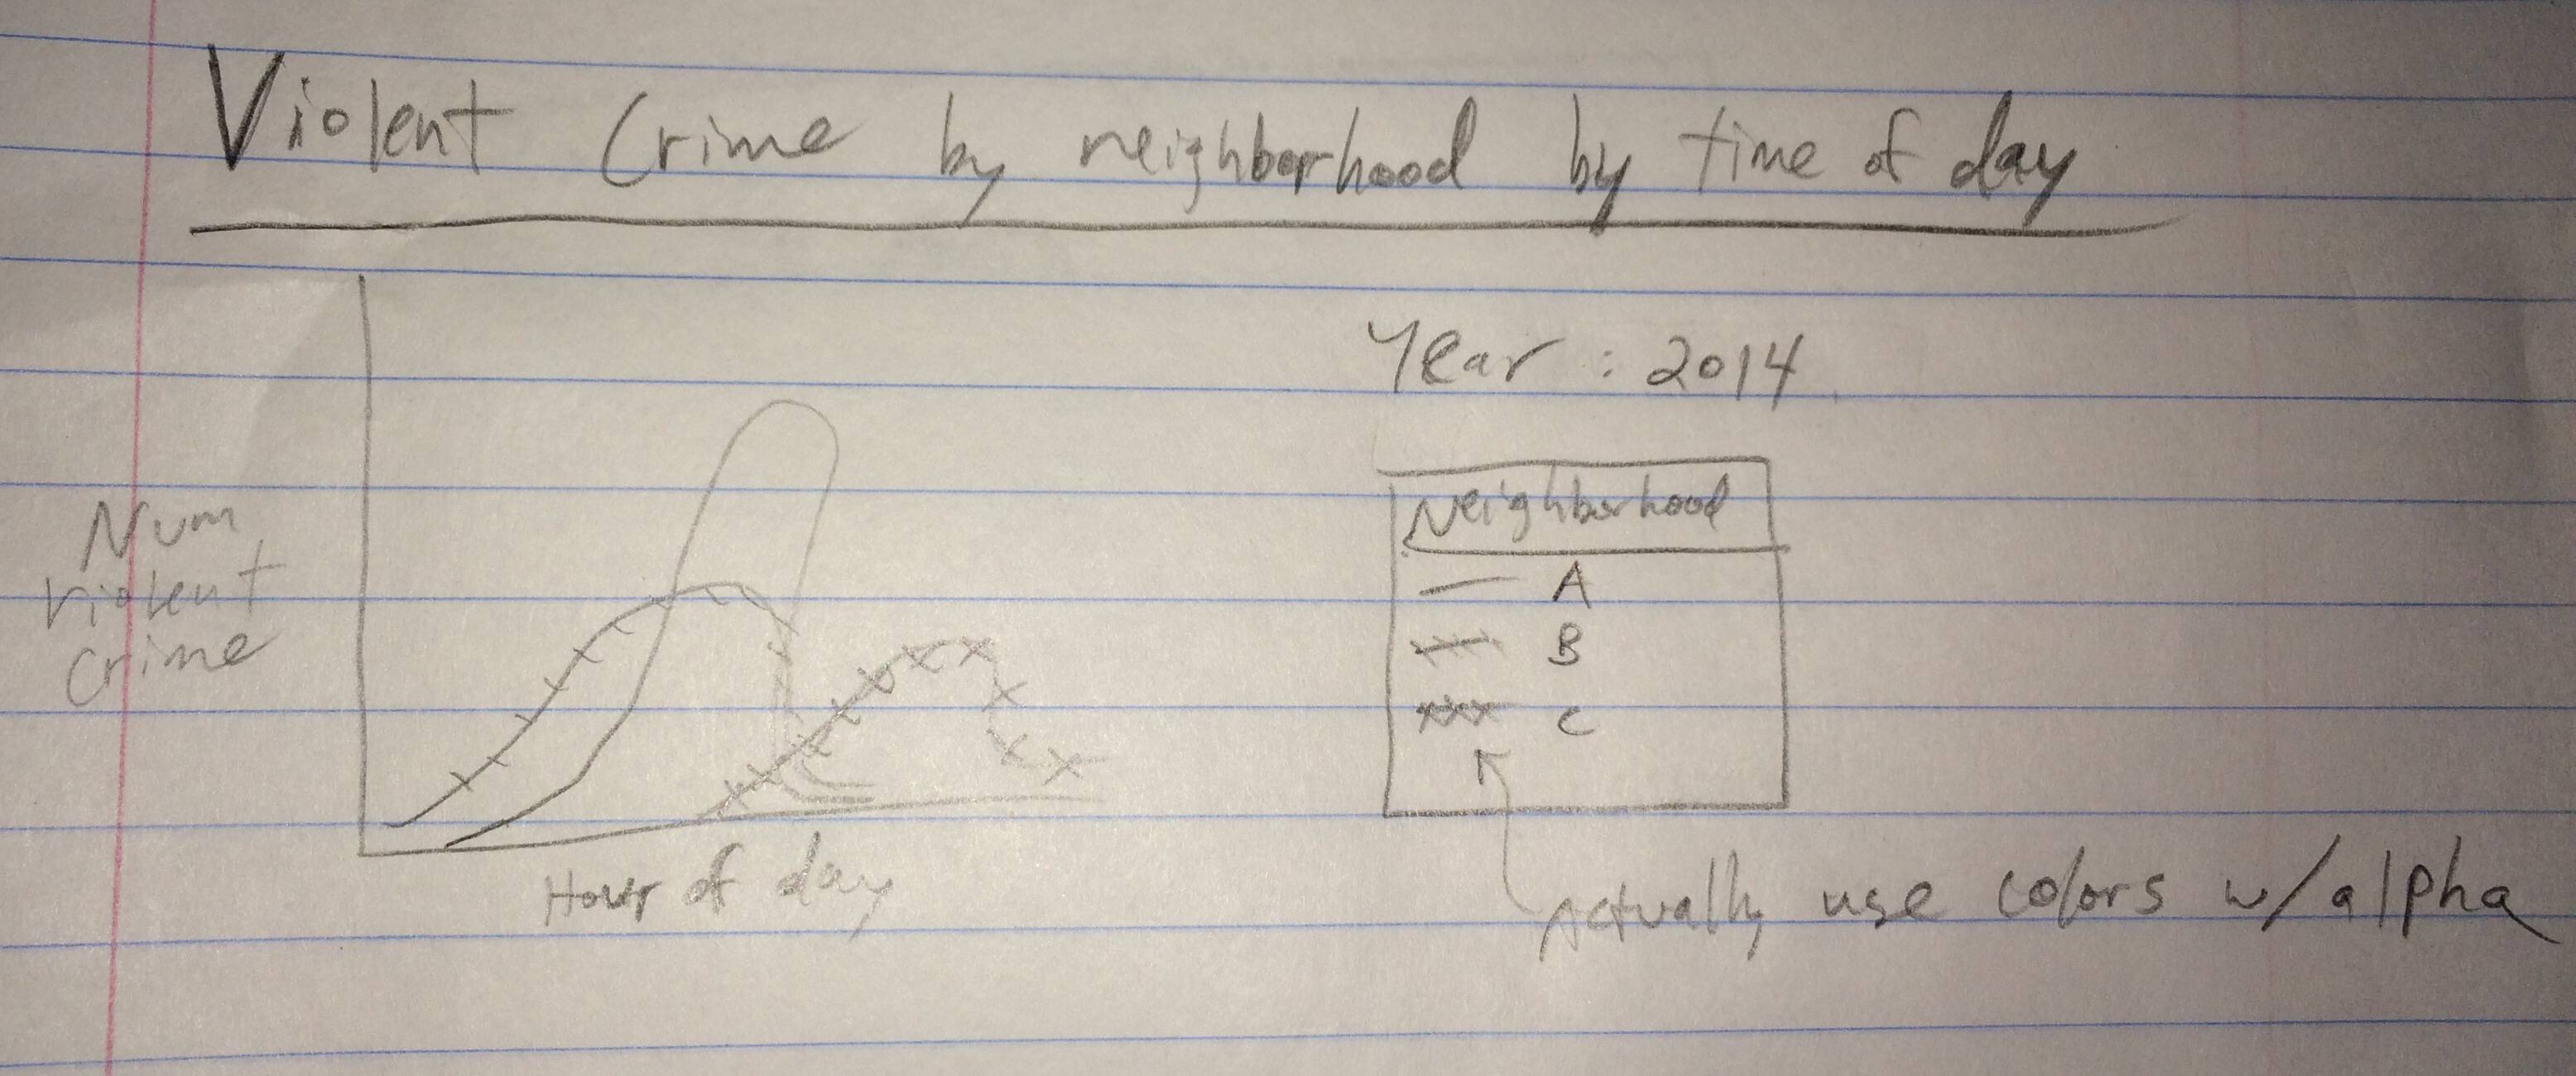 Violent Crime by neighborhood by time of day
Year : 2014
Num
violent
crime
Neighborhood
A
B
C
Hour of day
Actually use colors w/alpha